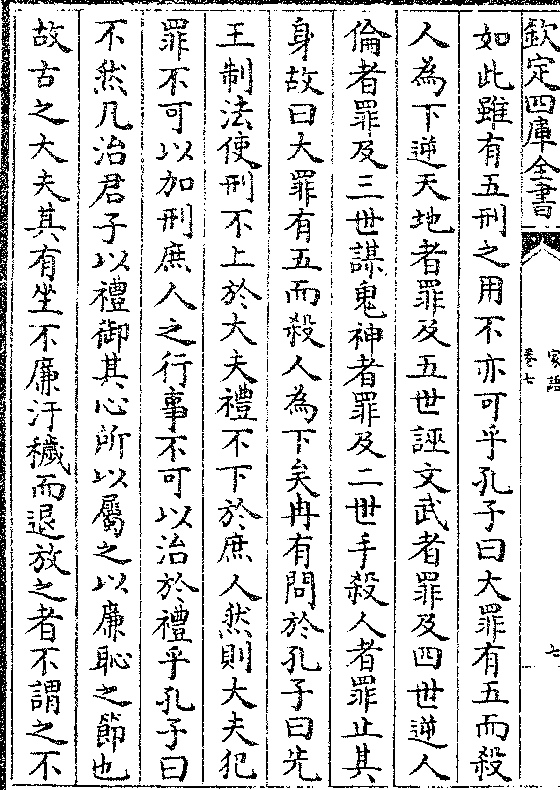 欽定四庫全書
家語
卷七
七
如此雖有五刑之用不亦可乎孔子曰大罪有五而殺
人為下逆天地者罪及五世誣文武者罪及四世逆人
倫者罪及三世謀鬼神者罪及二世手殺人者罪止其
身故曰大罪有五而殺人為下矣冉有問於孔子曰先
王制法使刑不上於大夫禮不下於庶人然則大夫犯
罪不可以加刑庶人之行事不可以治於禮乎孔子曰
不然凡治君子以禮御其心所以屬之以廉恥之節也
故古之大夫其有坐不廉汙穢而退放之者不謂之不